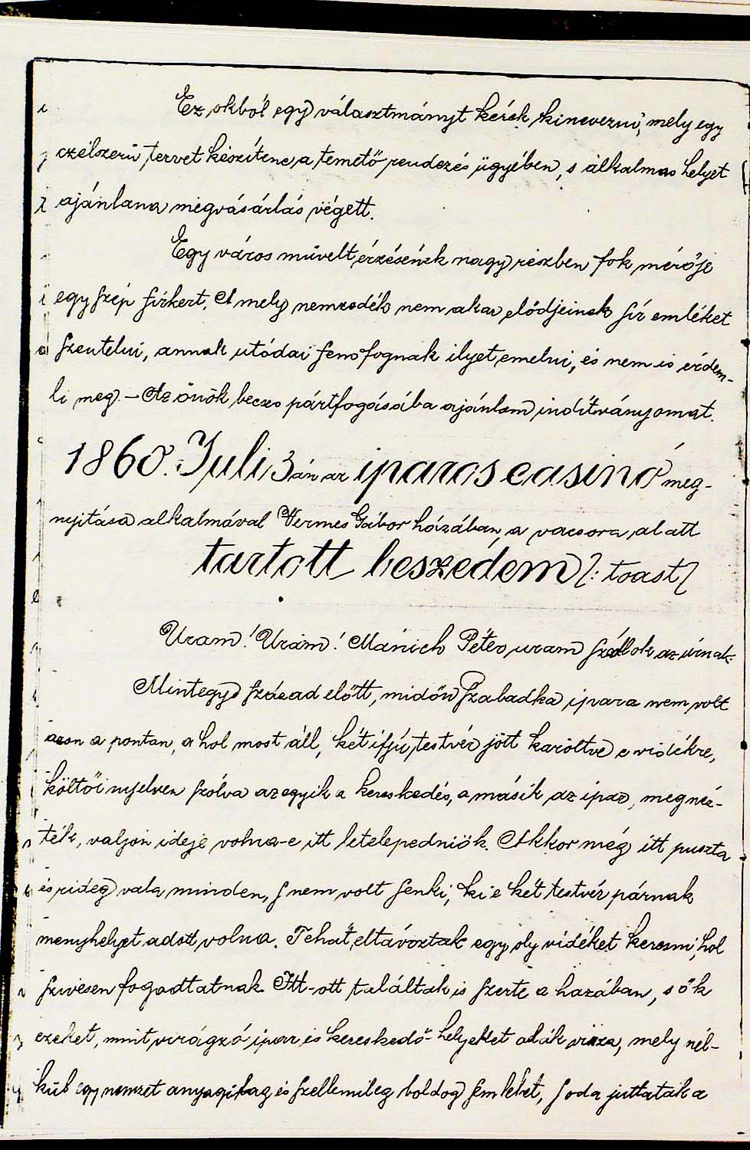 Ez okból egy választmányt kérek kinevezni, mely egy
czélszerü tervet készítene a temető rendezés ügyében, s alkalmas helyet
ajánlana megvásárlás végett.
Egy város müvelt érzésének nagy részben fok mérője
egy szép sírkert. A mely nemzedék nem akar elődjeinek sír emléket
szentelni, annak utódai sem fognak ilyet emelni, és nem is érdem-
li meg. — Az önök becses pártfogásába ajánlom indítványomat.
1860. Juli 3án az iparos casinó meg-
nyitása alkalmával Vermes Gábor házában, a vacsora alatt
tartott beszédem /: toast /
Uram! Uram! Mánich Péter uram szóllok az úrnak.
Mintegy század előtt, midőn Szabadka ipara nem volt
azon a pontan, a hol most áll, két ifjú testvér jött karöltve e vidékre,
költői nyelven szólva az egyik a kereskedés, a másik az ipar, megnéz-
ték, valjon ideje volna-e itt letelepedniök. Akkor még itt puszta
és rideg vala minden, s nem volt senki, ki e két testvér párnak
menyhelyet adott volna. Tehát eltávoztak egy oly vidéket keresni, hol
szívesen fogadtatnak. Itt-ott találtak is szerte a hazában, s ők
ezeket, mint virágzó ipar és kereskedő-helyeket adák vissza, mely nél-
kül egy nemzet anyagilag és szellemileg boldog sem lehet, s oda juttatták a